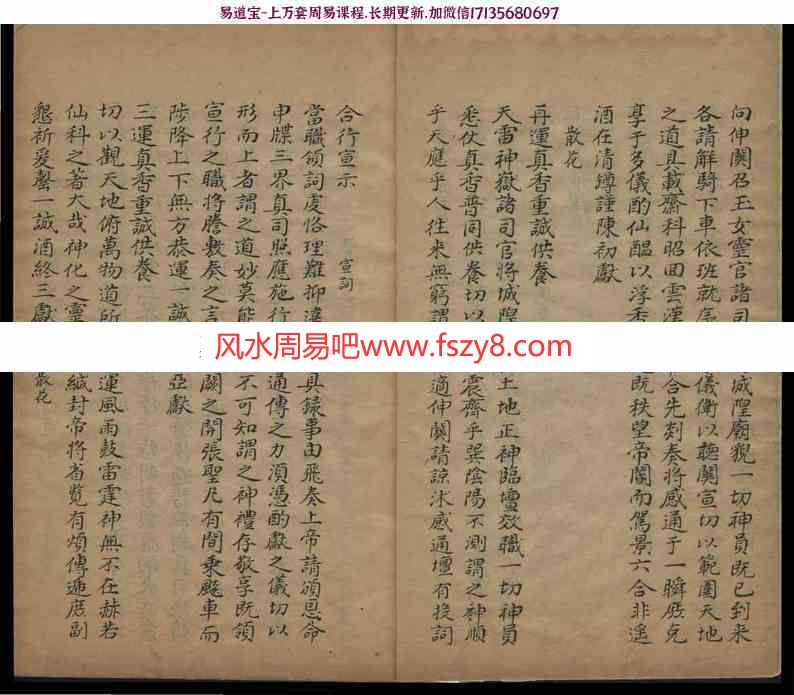 易道宝-上万套周易课程.长期更新.加微信17135680697
向伸闕召玉女靈官諸司
城隍廟貌一切神員既已到来
各請解騎下車依班就序
儀衛以聽闕宣切以範圍天地
之道具載齋科昭回雲漢
合先剡奏將感通于一瞬庶克
享于多儀酌仙醖以浮香
既秩望帝閽而駕景六合非遥
酒在清罇謹陳初獻
散花
再運真香重誠供養
天雷神嶽諸司官將城隍
土地正神臨壇效職一切神員
悉仗真香普同供養切以
震齊乎巽陰陽不測謂之神順
乎天應乎人往来無窮謂
適伸闕請諒沐感通壇有投詞
合行宣示
宣詞
當職領詞虔恪理難抑違
具録事由飛奏上帝請頒恩命
申牒三界真司照應施行
通傳之力須憑酌獻之儀切以
形而上者謂之道妙莫能
不可知謂之神禮存敬享既領
宣行之職將謄敷奏之言
關之開張聖凡有間乗飈車而
陟降上下無方恭運一誠
亞獻
三運真香重誠供養
切以觀天地俯萬物道所
運風雨鼓雷霆神無不在赫若
仙科之著大哉神化之靈
緘封帝將省覽有煩傳遞庶副
懇祈爰罄一誠酒終三獻
散花
风水周易吧www.fszy8.com